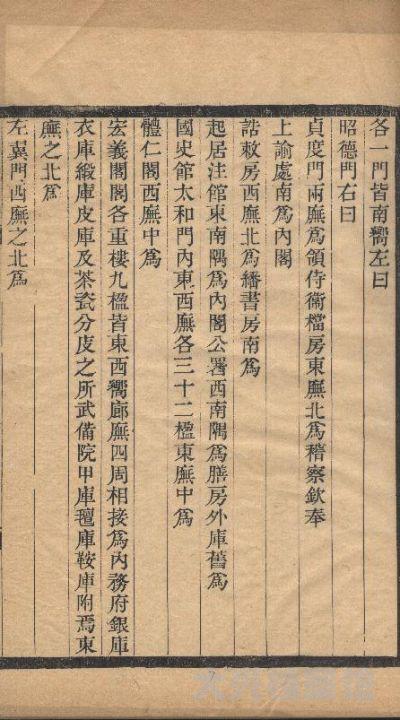 各一門皆南嚮左曰
昭德門右曰
貞度門兩廡爲領侍衞檔房東廡北爲稽察欽奉
上諭處南爲內閣
誥敕房西廡北爲繙書房南爲
起居注館東南隅爲內閣公署西南隅爲膳房外庫舊爲
國史館太和門內東西廡各三十二楹東廡中爲
體仁閣西廡中爲
宏義閣閣各重樓九楹皆東西嚮廊廡四周相接爲內務府銀庫
衣庫緞庫皮庫及茶瓷分庋之所武備院甲庫氊庫鞍庫附焉東
廡之北爲
左翼門西廡之北爲